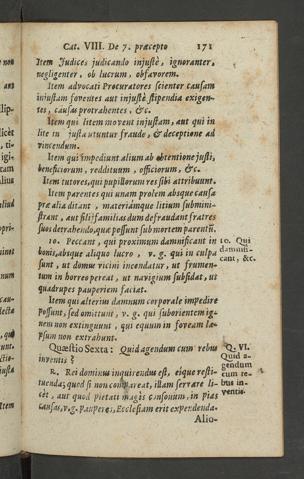 Cat. VIII. De 7. præcepto 171
Item Judices judicando injustè, ignoranter,
negligenter, ob lucrum, obfavorem.
Item advocati Procuratores scienter causam
injustam foventes aut injustè stipendia exigen-
tes, causas protrahentes, &c.
Item qui litem movent injustam, aut qui in
lite in justa utuntur fraude, & deceptione ad
vincendum.
Item qui impediunt alium ab obtentione justi,
beneficiorum, reddituum, officiorum, &c.
Item tutores, qui pupillorum res sibi attribuunt.
Item parentes qui unam prolem absque causa
præ alia ditant, materiamque litium submini-
strant, aut filij familias dum defraudant fratres
suos detrahendo, quæ possunt sub mortem parentũ.
10. Peccant, qui proximum damnificant in
bonis, absque aliquo lucro, v. g. qui in culpa
sunt, ut domus vicini incendatur, ut frumen-
tum in horreo pereat, ut navigium subsidat, ut
quadrupes pauperiem faciat.
10. Qui
damnifi-
cant, &c.
Item qui alterius damnum corporale impedire
possunt, sed omittunt, v. g. qui suborientem ig-
nem non extinguunt, qui equum in foveam la-
psum non extrahunt.
Quæstio Sexta: Quid agendum cum rebus
inventis?
Q. VI.
Quid a-
gendum
cum re-
bus in-
ventis.
R. Rei dominus inquirendus est, eique resti-
tuenda; quod si non compareat, illam servare li-
cèt, aut quod pietati magis consonum, in pias
causas, v. g. pauperes, Ecclesiam erit expendenda.
Alio-